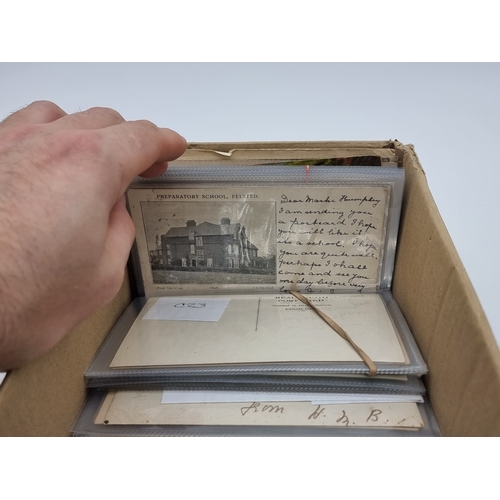 PREPARATORY SCHOOL, FELSTED.
Dear Mark Humphry
I am sending you
a postcard I hope
you will like it
its a school. I hope
you are quite well.
perhaps I shall
come and see you
one day before very
POST CARD
from H. M. B.